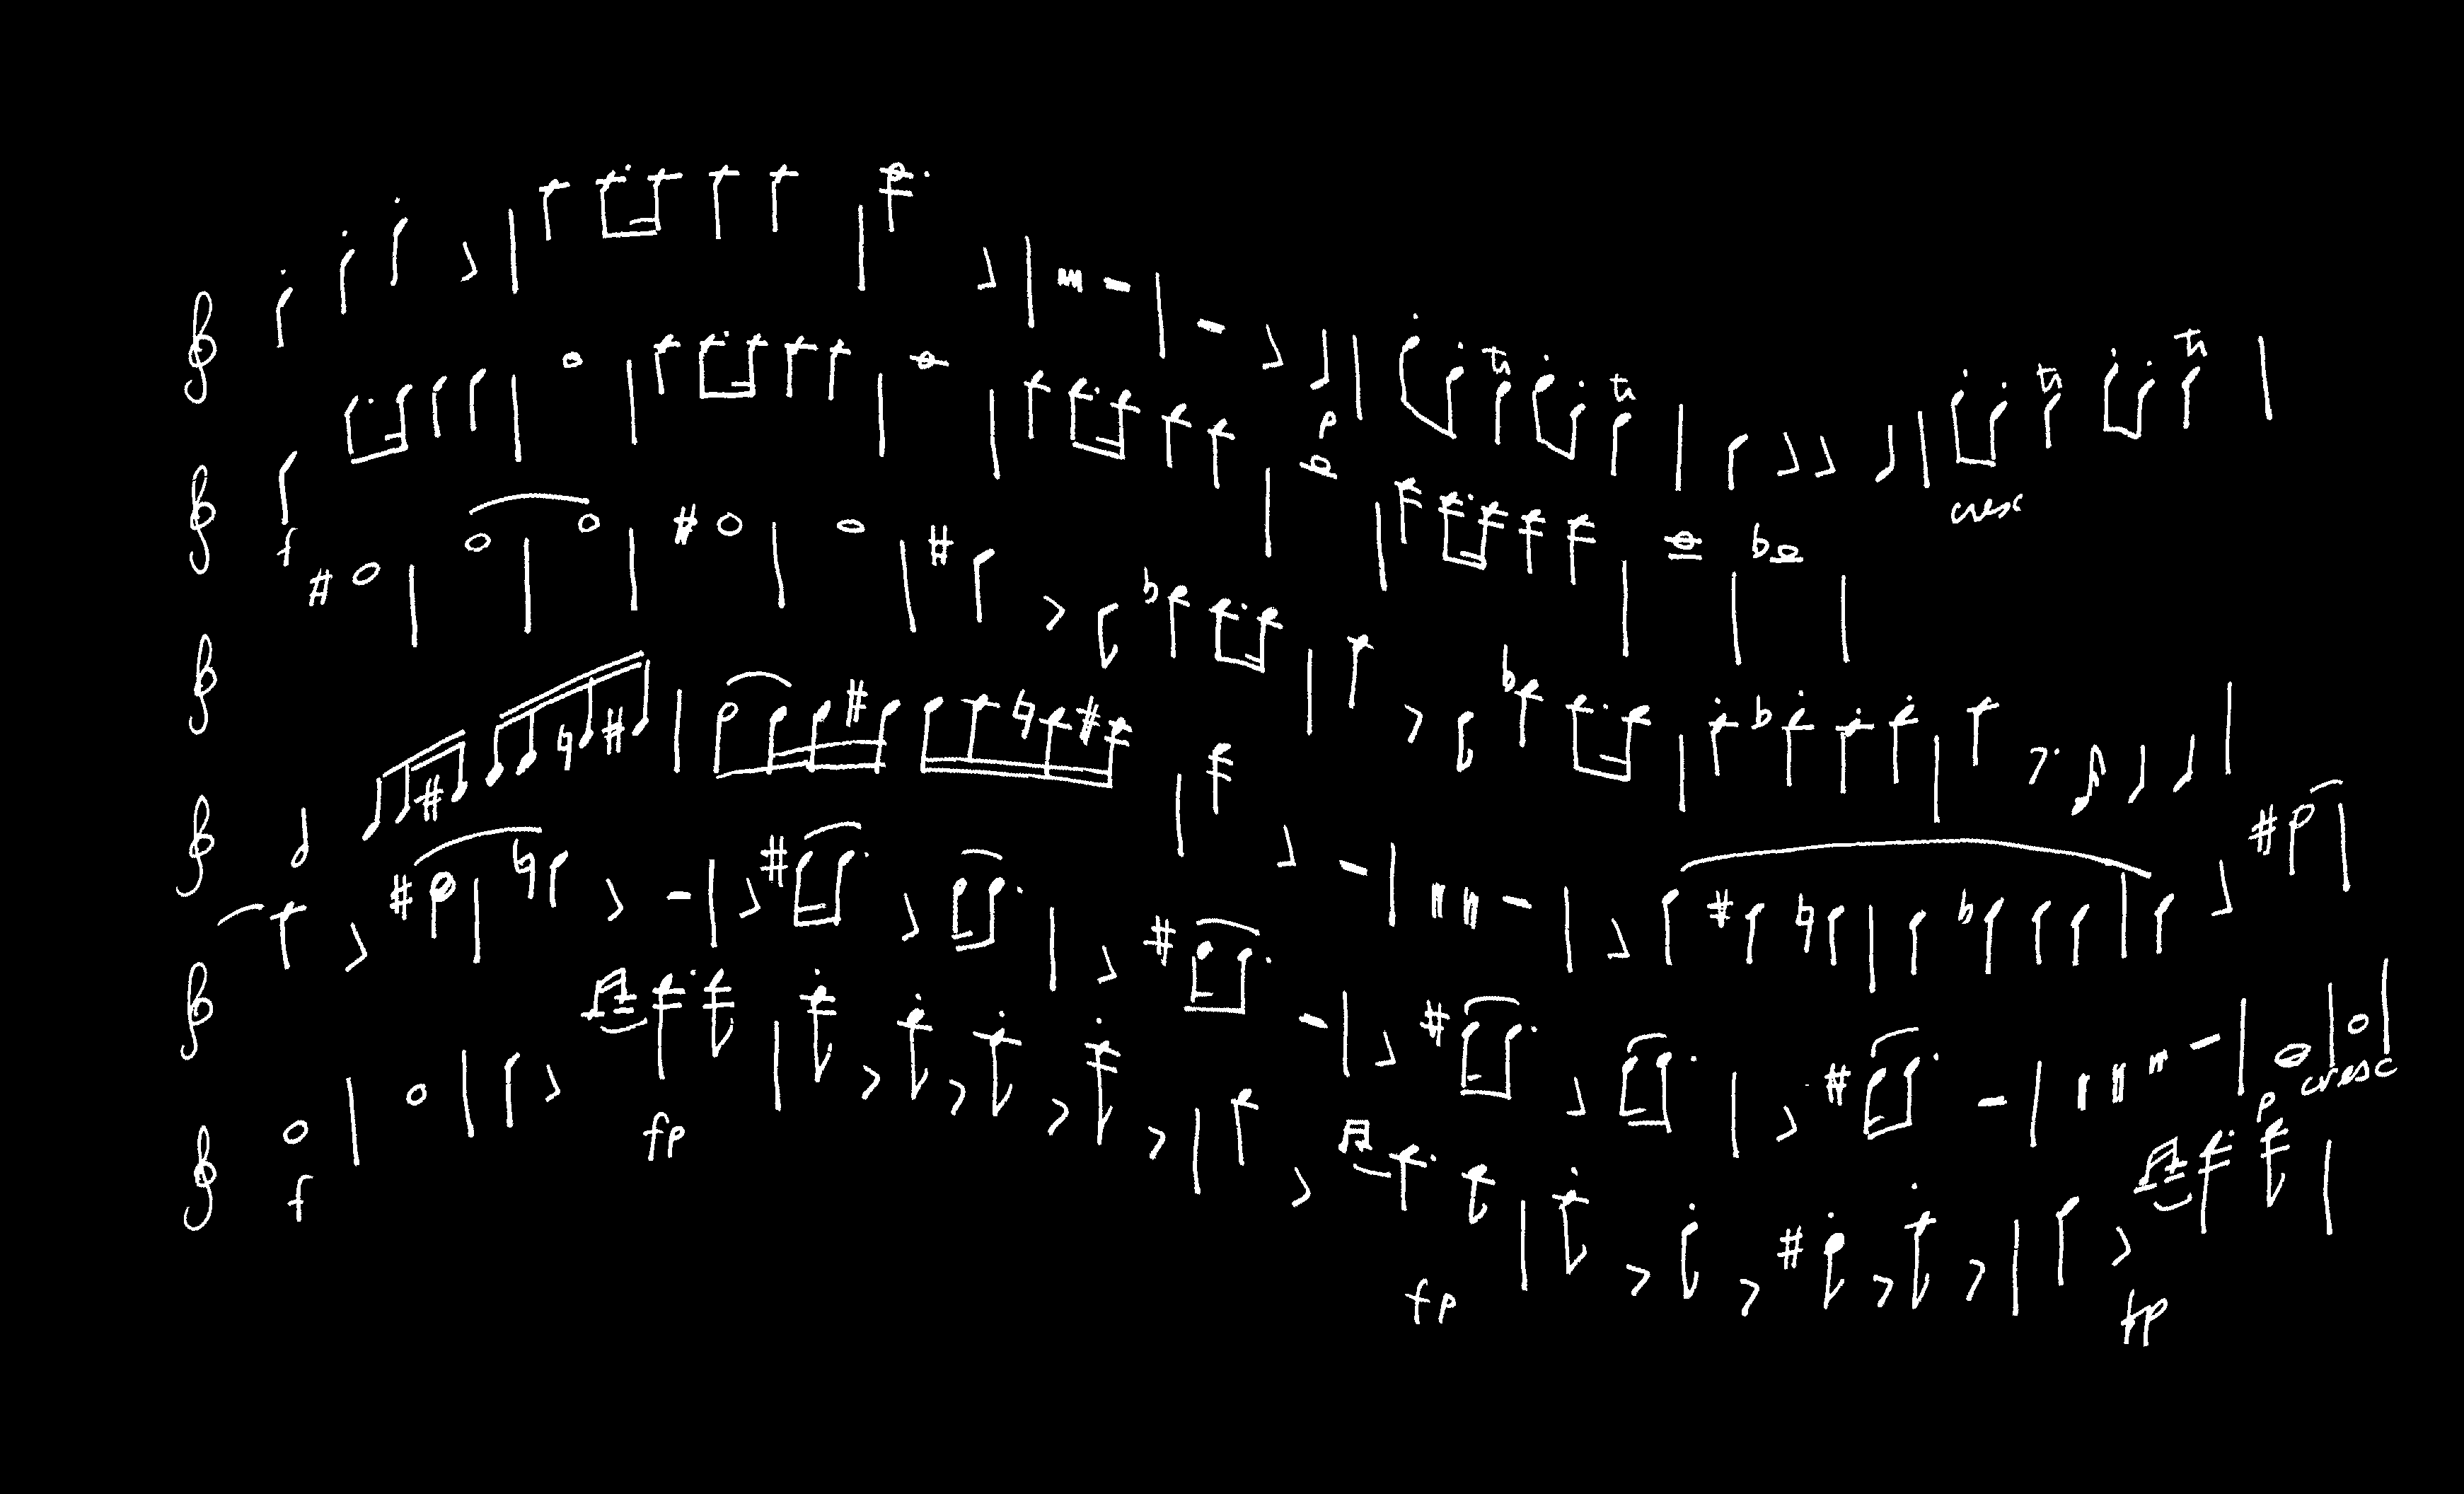 tr tr tr tr
p
cresc
f
cresc
p
f
fp
fp
fp